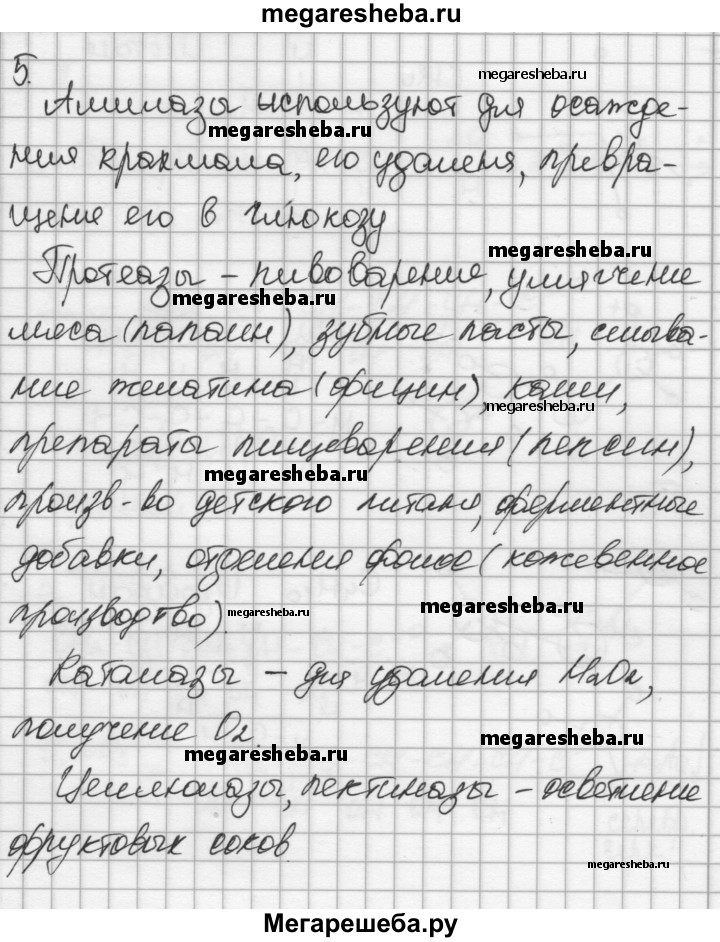 megaresheba.ru
5.
megaresheba.ru
Амилазы используют для осажде-
megaresheba.ru
ния крахмала, его удаленя, превра-
щение его в глюкозу
megaresheba.ru
Протеазы - пивоварение, умягчение
megaresheba.ru
мяса (папаин), зубные пасты, смыва-
ние желатина (фицин), каши,
megaresheba.ru
препараты пищеварения (пепсин),
megaresheba.ru
произв-во детского питаня, ферментные
добавки, отделения (кожевенное
производство).
megaresheba.ru
megaresheba.ru
Каталазы - для удаления H2O2,
получение O2.
megaresheba.ru
megaresheba.ru
Целлюлазы, пектиназы - осветление
фруктовых соков
megaresheba.ru
Мегарешеба.ру